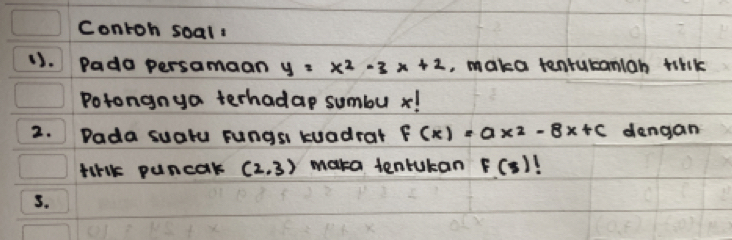 Contoh soal:
1). Pada persamaan y = x² - 3x + 2, maka tentukanlah titik
Potongnya terhadap sumbu x!
2. Pada suatu Fungsi kuadrat F(x) = ax² - 8x + c dengan
titik puncak (2,3) maka tentukan F(3)!
3.